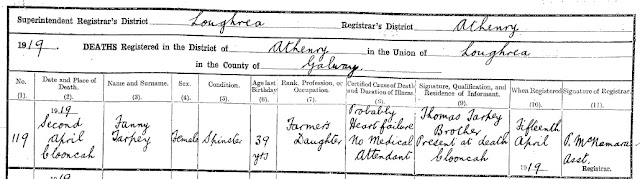 Superintendent Registrar's District Loughrea Registrar's District Athenry
1919 DEATHS Registered in the District of Athenry in the Union of Loughrea
in the County of Galway
No. Date and Place of Death. Name and Surname. Sex. Condition. Age last Birthday Rank, Profession, or Occupation. Certified Cause of Death and Duration of Illness. Signature, Qualification, and Residence of Informant. When Registered Signature of Registrar
(1.) (2.) (3.) (4.) (5.) (6.) (7.) (8.) (9.) (10.) (11.)
119 1919 Second April Clooncah Fanny Tarpey Female Spinster 39 yrs Farmers Daughter Probably Heart failure No Medical Attendant Thomas Tarpey Brother Present at death Clooncah Fifteenth April 1919 P. McNamara Asst. Registrar.
1919